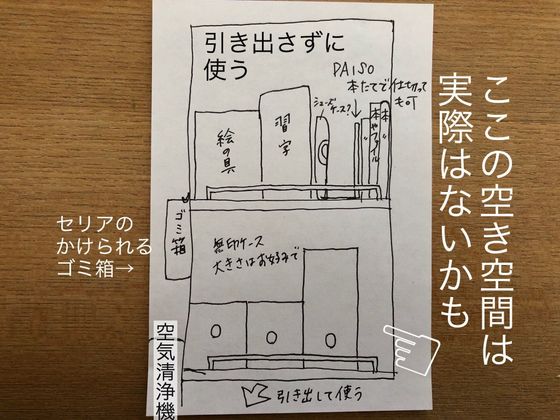 引き出さずに
使う
DAISO
本たてで仕切って
も可
シューズ
ケース?
絵の具
習字
本やファイル
本
ここの空き空間は
実際はないかも
セリアの
かけられる
ゴミ箱→
ゴミ箱
無印ケース
大きさはお好みで
空気清浄機
引き出して使う